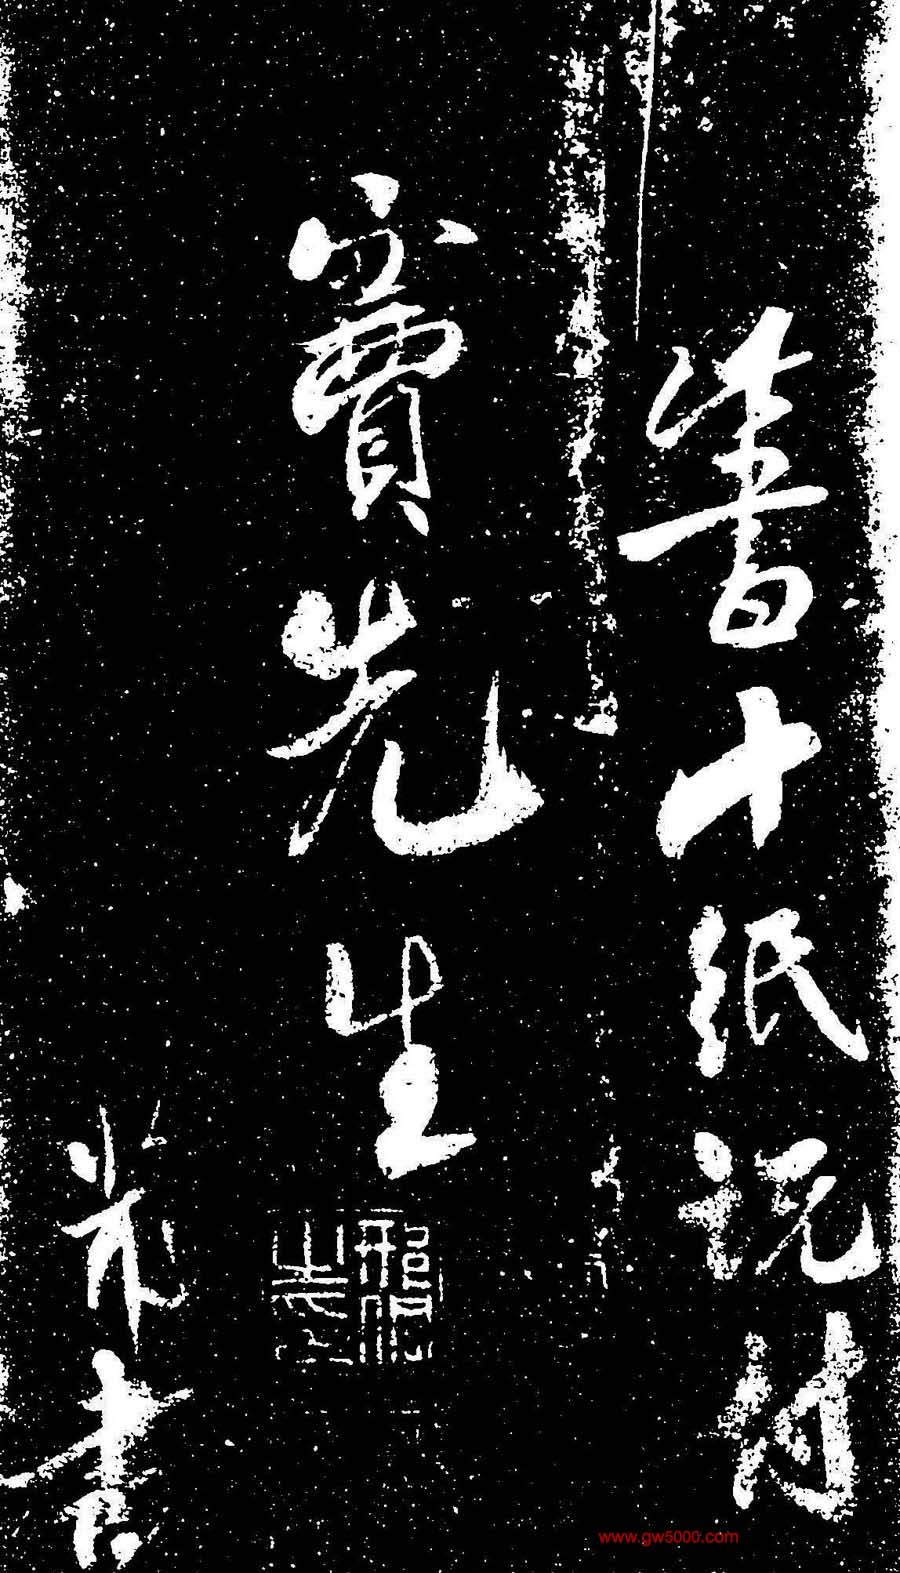 書十紙説付
竇先生
芾書
www.gw5000.com